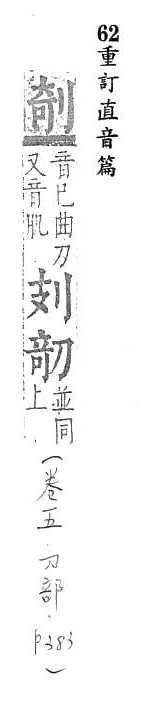 62重訂直音篇
剞
音已曲刀
又音肌
並同
上
（卷五·刀部·p383）